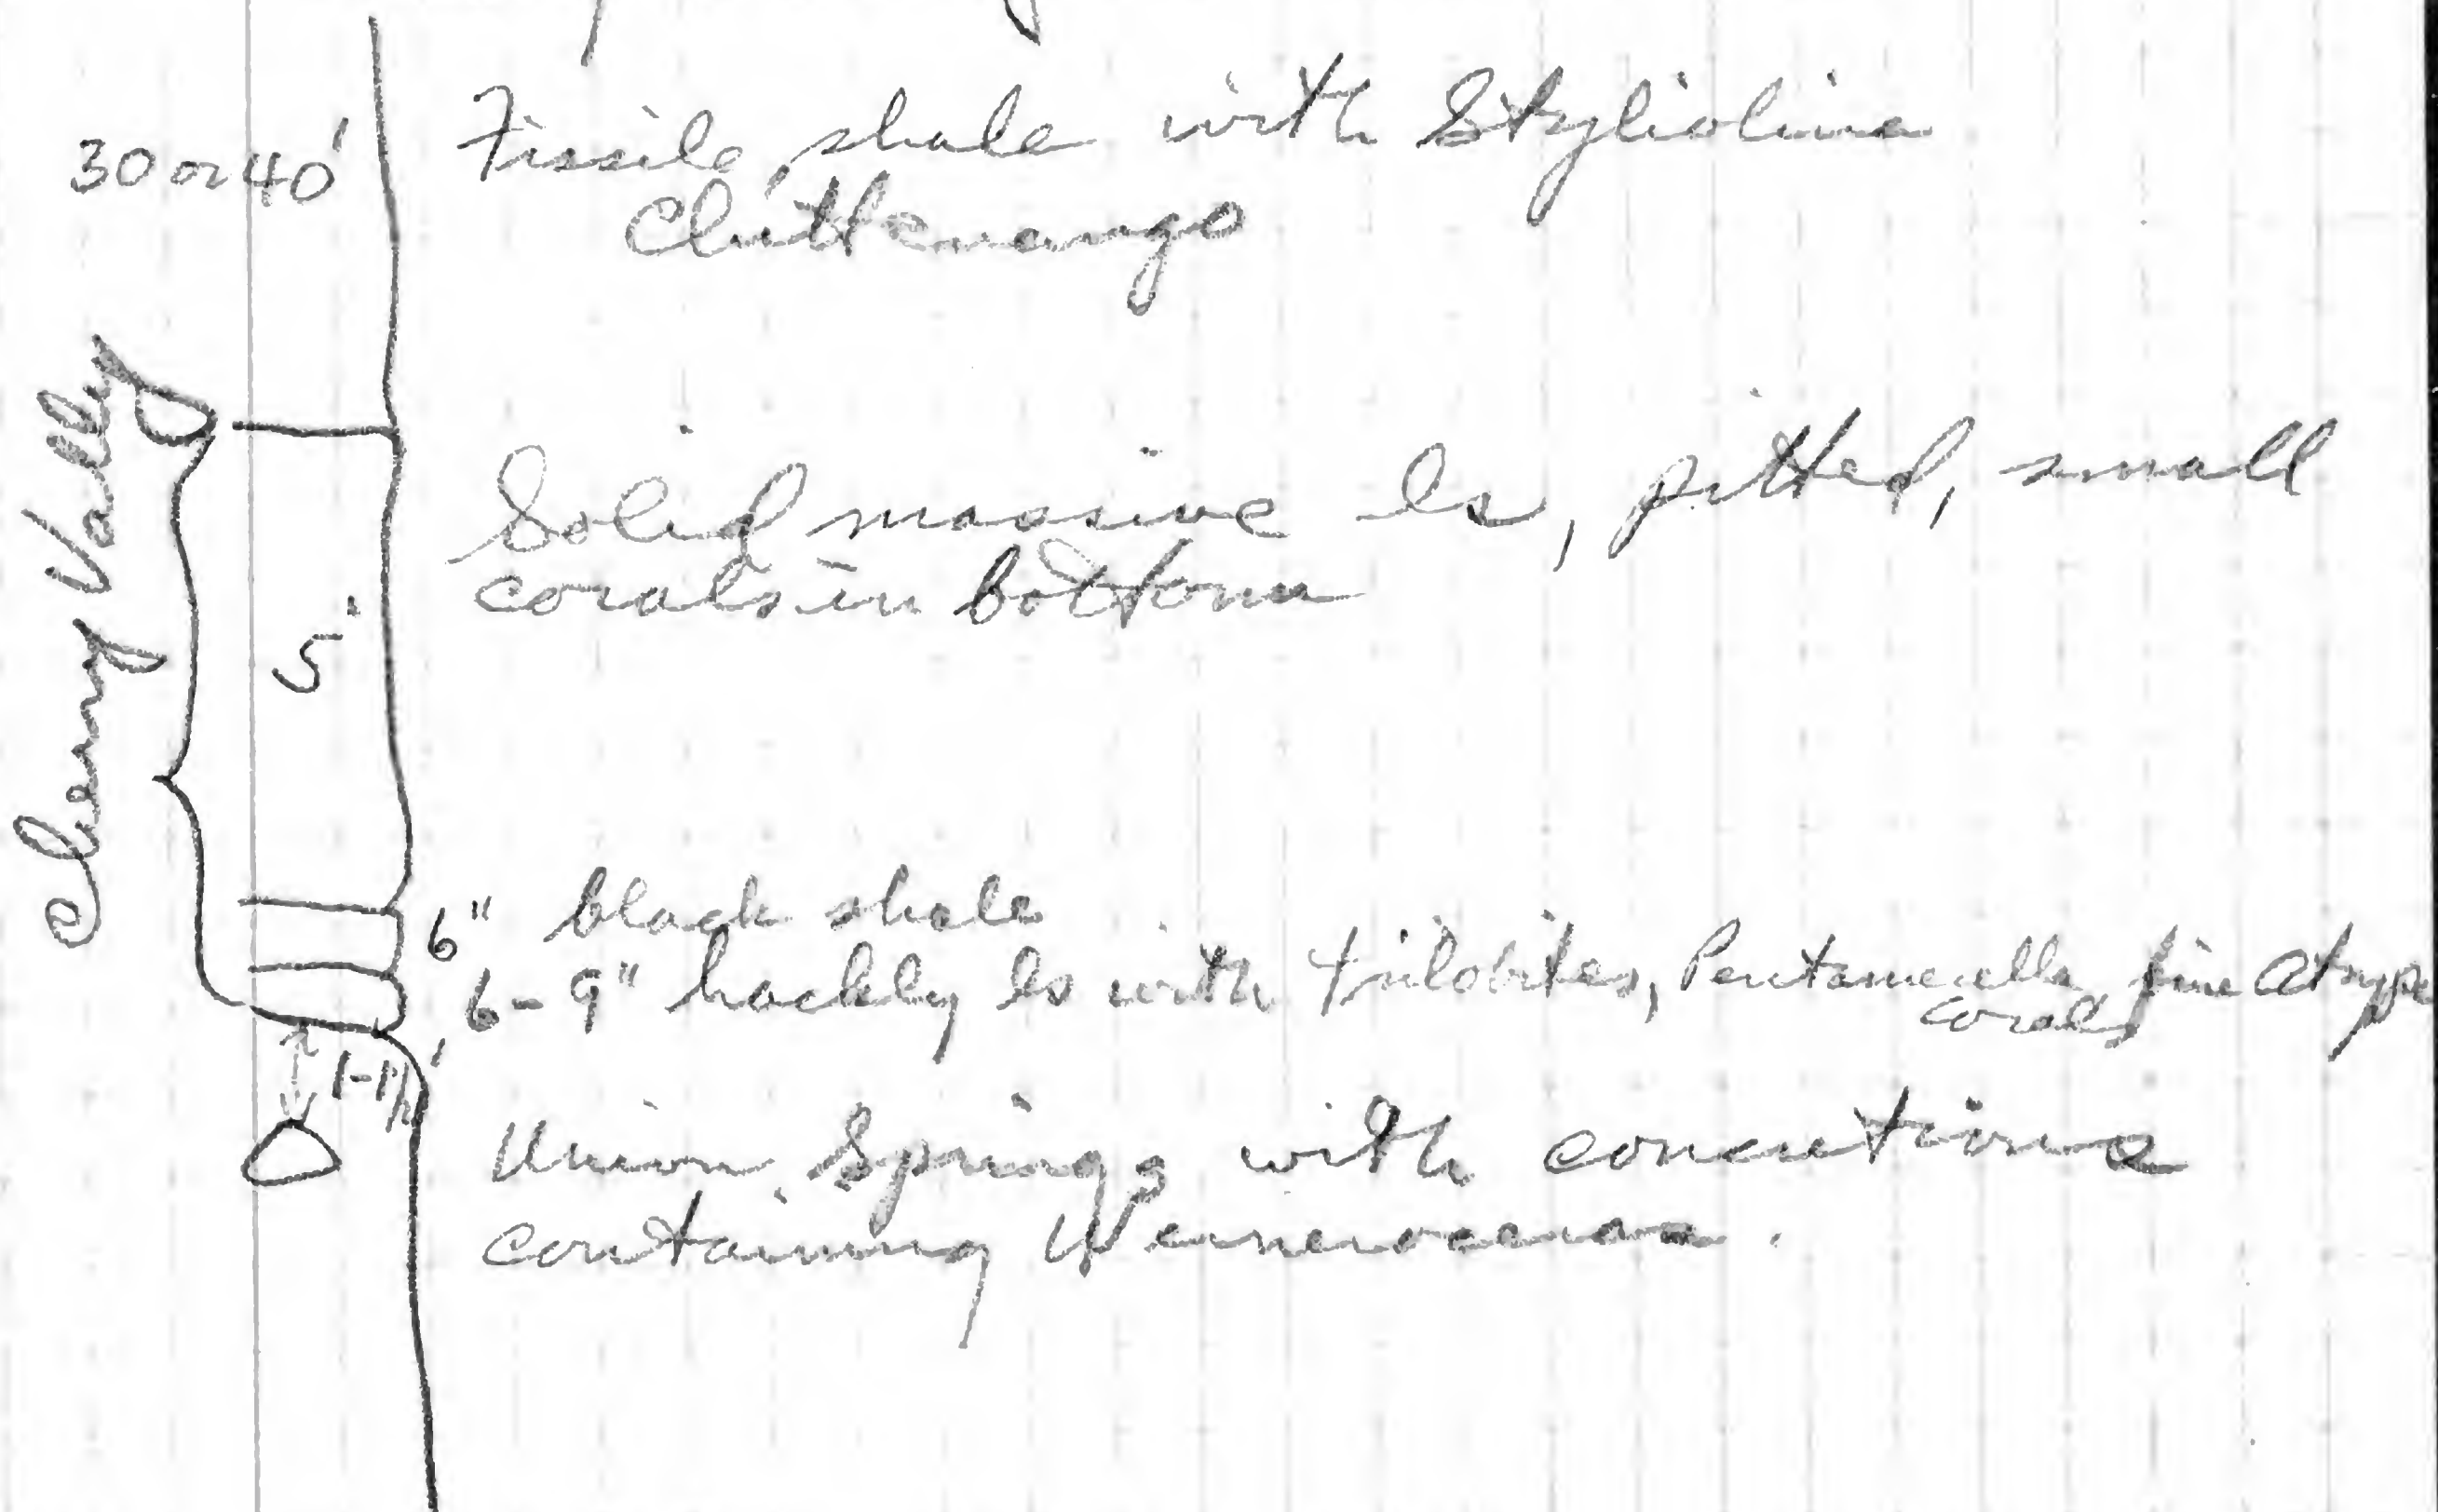 30 or 40'
Fissile shale with Styliolina
Chittenango
Cherry Vally
5'
Solid massive ls, pitted, small
corals in bottom
6" black shale
6-9" hackly ls with trilobites, Pentamerella, fine Atrypa
corals
1-1½'
Union Springs with concretions
containing Werneroceras.